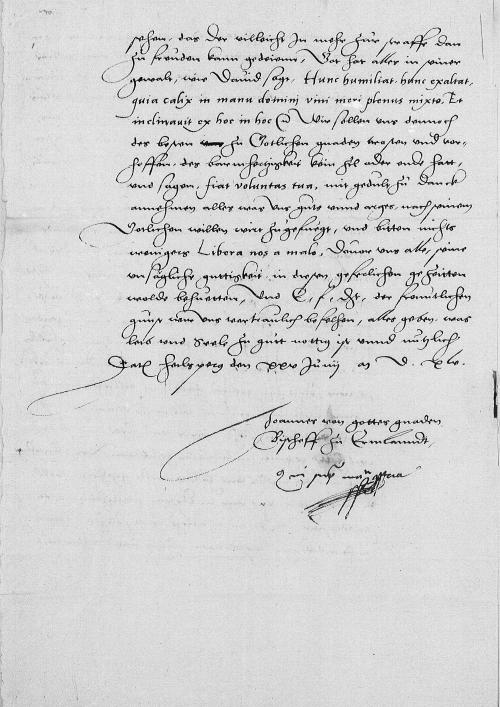 sehen, das der villeicht in mehr zur straffe dan
zu freuden kann gedeienn, Got hat alles in seiner
gewalt, wie Dauid sagt, Hunc humiliat, hunc exaltat,
quia calix in manu domini vini meri plenus mixto, Et
inclinauit ex hoc in hoc Wir sollen uns dennoch
des besten zu Gotlichen gnaden trosten und ver-
hoffen, des barmhertzigkeit kein zil ader ende hatt,
und sagen, fiat voluntas tua, mit gedult zu danck
annehmen alles was uns guts unnd arges nach seinem
Gotlichen willen wirt zugefuegt, und bitten nichts
weinigers Libera nos a malo, Dauor uns alle, seine
unsägliche guttigkeit in diesen geferlichen gezeitten
wolde behuetten, Und E. f. der freuntlichen
gunst wir uns vertraulich befelhen, alles geben, was
leib und Seele zu gutt nottig ist unnd nutzlich
Dat Heilsperg den xxv Junij M D xlv.
Joannes von gottes gnaden
Bischoff zu Ermlanndt,